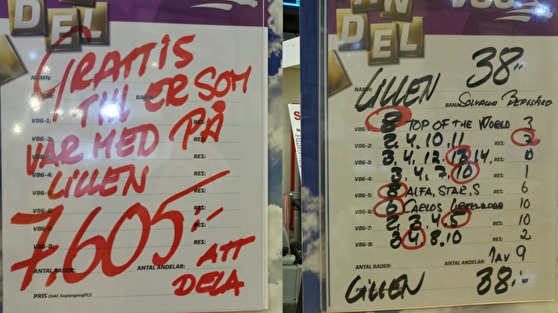 DEL
GRATTIS
NAMN:
TILL ER SOM
V86-1:
VAR MED PÅ
LILLEN
V86-4:
RES:
7.605:-
V86-5:
V86-6:
ATT
DELA
ANTAL RADER:
ANTAL ANDELAR:
PRIS (Inkl. kupongavgift):
ANDEL
V86
NAMN:
LILLEN 38:-
BANA: SOLVALLA BERGSÅKER
V86-1: 8 TOP OF THE WORLD 3
V86-2: 2, 4, 10, 11 RES: 2
V86-3: 3, 4, 12, 13, 14, RES: 0
V86-4: 3, 4, 7, 10 RES: 1
V86-5: 8 ALFA, STAR, S RES: 6
V86-6: 6 CARLOS RES: 10
V86-7: 2, 3, 4, 5 RES: 10
V86-8: 3, 4, 8, 10 RES: 2
ANTAL RADER: ANTAL ANDELAR: 1 AV 9
LILLEN 38:-